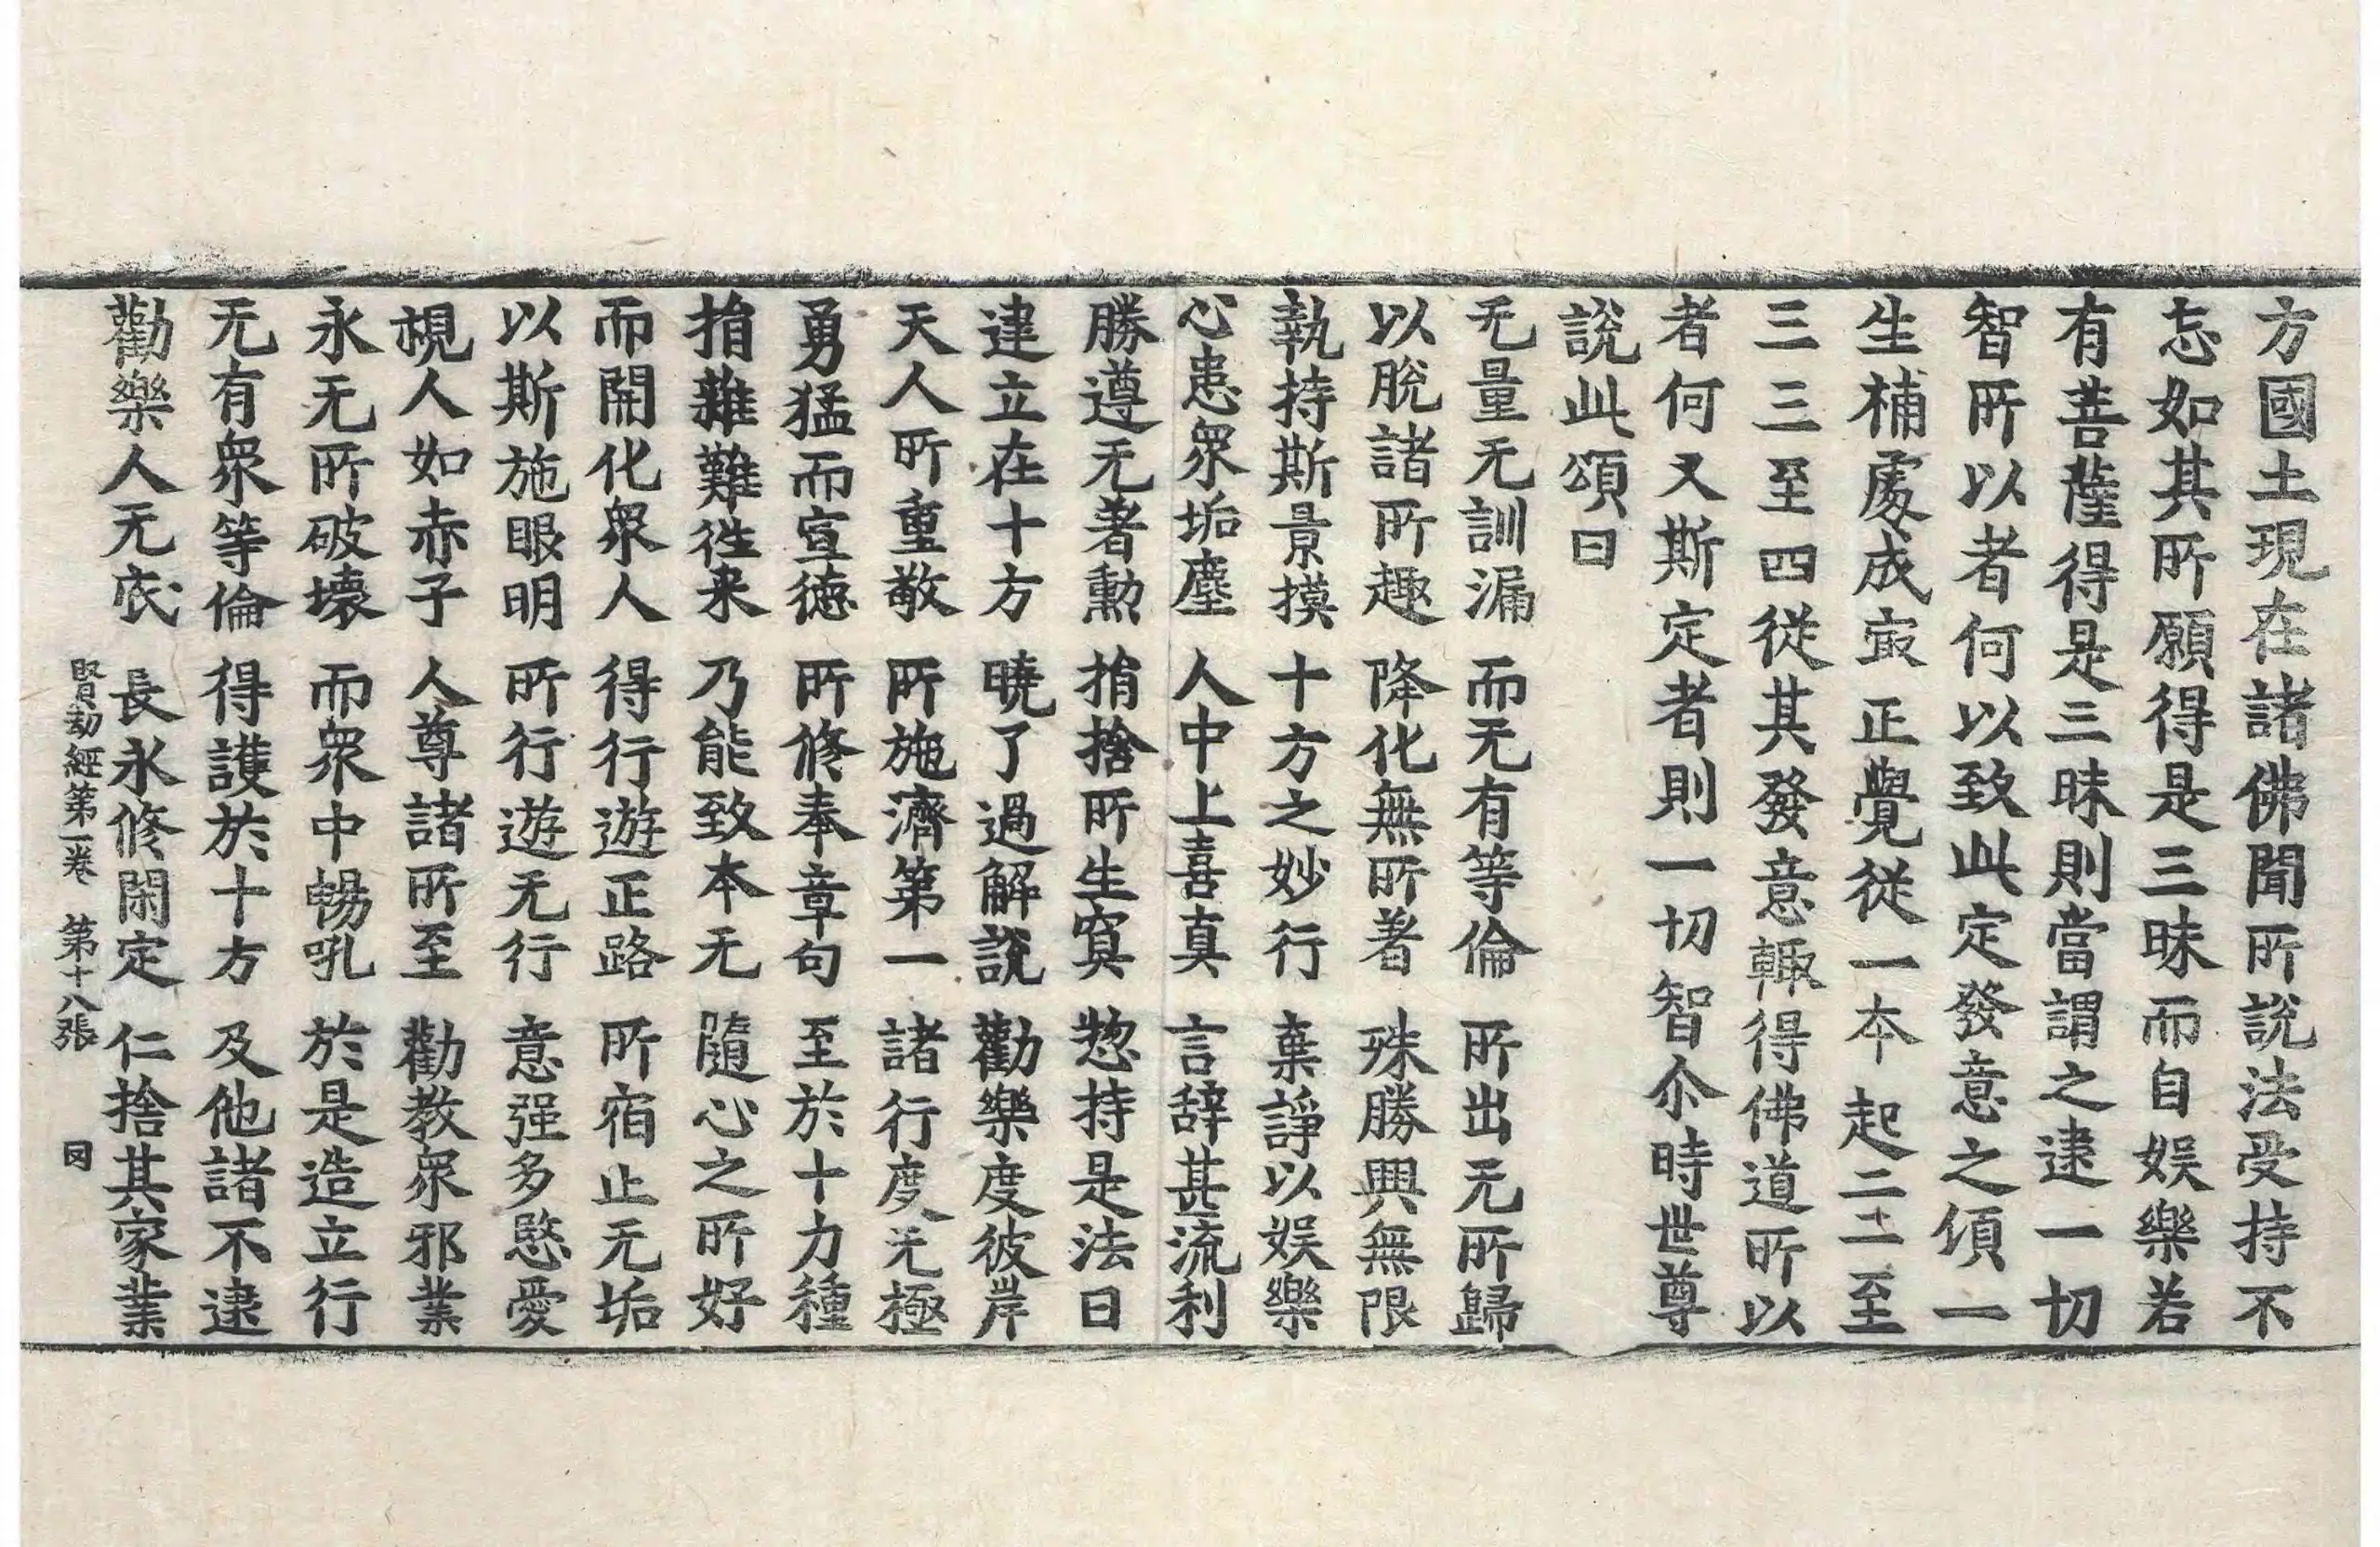 方國土現在諸佛聞所說法受持不
忘如其所願得是三昧而自娛樂若
有菩薩得是三昧則當謂之逮一切
智所以者何以致此定發意之頃一
生補處成㝡正覺從一本起二二至
三三至四從其發意輙得佛道所以
者何又斯定者則一切智尒時世尊
說此頌曰
无量无訓漏 而无有等倫 所出无所歸
以脫諸所趣 降化無所著 殊勝興無限
執持斯景摸 十方之妙行 棄諍以娛樂
心患衆垢塵 人中上喜真 言辞甚流利
勝遵无著勳 捐捨所生寞 惣持是法日
建立在十方 曉了過解說 勸樂度彼岸
天人所重敬 所施濟第一 諸行度无極
勇猛而宣德 所修奉章句 至於十力種
捐離難往来 乃能致本无 隨心之所好
而開化衆人 得行遊正路 所宿止无垢
以斯施眼明 所行遊无行 意强多愍愛
視人如赤子 人尊諸所至 勸教衆邪業
永无所破壞 而衆中暢吼 於是造立行
无有衆等倫 得護於十方 及他諸不逮
勸樂人无依 長永修閑定 仁捨其家業
賢劫經第一卷 第十八張